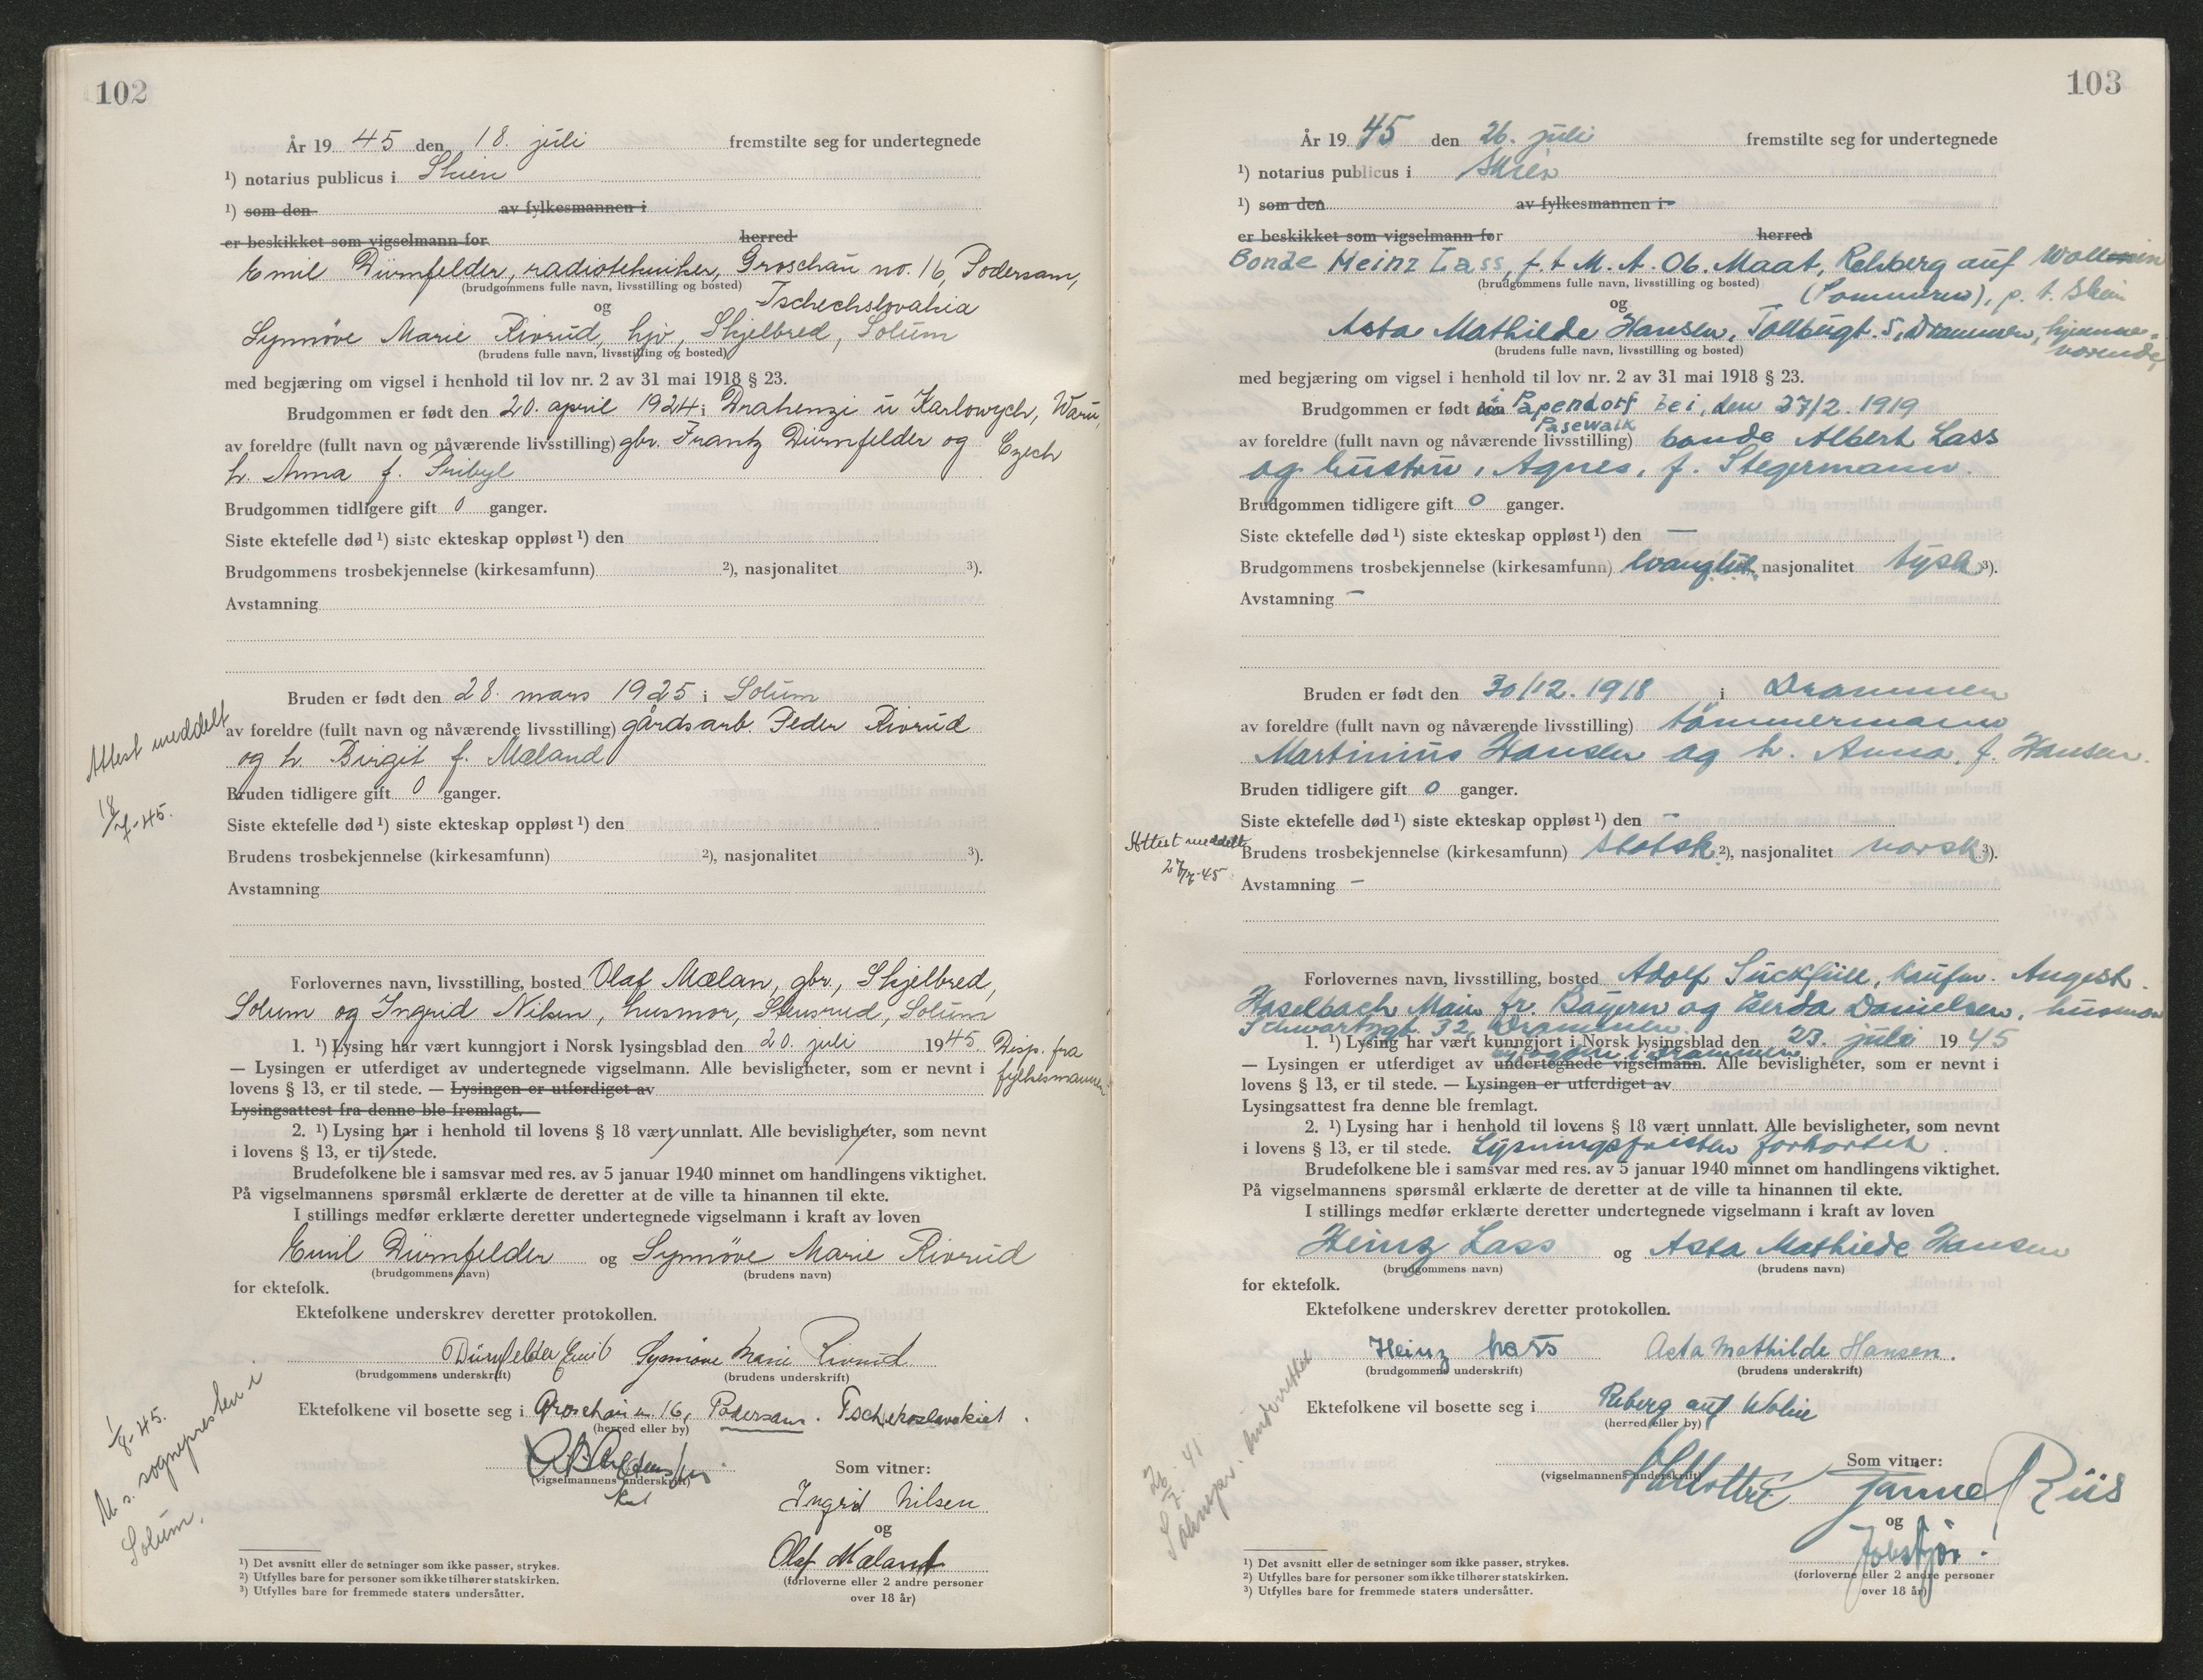 102
År 19 45 den 18. juli fremstilte seg for undertegnede
¹) notarius publicus i Skien
¹) som den av fylkesmannen i
er beskikket som vigselmann for herred
Emil Dürnfelder, radiotekniker, Groschau no. 16, Podersam,
(brudgommens fulle navn, livsstilling og bosted)
og Tschechslovakia
Synnøve Marie Rivrud, hjv, Skjelbred, Solum
(brudens fulle navn, livsstilling og bosted)
med begjæring om vigsel i henhold til lov nr. 2 av 31 mai 1918 § 23.
Brudgommen er født den 20. april 1924 i Drahenzi u Karlowych, Waru,
av foreldre (fullt navn og nåværende livsstilling) gbr. Frantz Dürnfelder og Czech
h. Anna f.
Brudgommen tidligere gift 0 ganger.
Siste ektefelle død ¹) siste ekteskap oppløst ¹) den
Brudgommens trosbekjennelse (kirkesamfunn) ²), nasjonalitet ³).
Avstamning
Bruden er født den 28. mars 1925 i Solum
Attest meddelt
av foreldre (fullt navn og nåværende livsstilling) gårdsarb. Peder Rivrud
og h. Birgit f. Mæland
Bruden tidligere gift 0 ganger.
18/7-45.
Siste ektefelle død ¹) siste ekteskap oppløst ¹) den
Brudens trosbekjennelse (kirkesamfunn) ²), nasjonalitet ³).
Avstamning
Forlovernes navn, livsstilling, bosted Olaf Mælan, gbr., Skjelbred,
Solum og Ingrid Nilsen, husmor, Stensrud, Solum
1. ¹) Lysing har vært kunngjort i Norsk lysingsblad den 20. juli 1945. Disp. fra
— Lysingen er utferdiget av undertegnede vigselmann. Alle bevisligheter, som er nevnt i fylkesmannen
lovens § 13, er til stede. — Lysingen er utferdiget av
Lysingsattest fra denne ble fremlagt. —
2. ¹) Lysing har i henhold til lovens § 18 vært unnlatt. Alle bevisligheter, som nevnt
i lovens § 13, er til stede.
Brudefolkene ble i samsvar med res. av 5 januar 1940 minnet om handlingens viktighet.
På vigselmannens spørsmål erklærte de deretter at de ville ta hinannen til ekte.
I stillings medfør erklærte deretter undertegnede vigselmann i kraft av loven
Emil Dürnfelder og Synnøve Marie Rivrud
(brudgommens navn) (brudens navn)
for ektefolk.
Ektefolkene underskrev deretter protokollen.
Dürnfelder Emil Synnøve Marie Rivrud
(brudgommens underskrift) (brudens underskrift)
Ektefolkene vil bosette seg i Groschau n 16, Podersam. Tschekoslovakiet.
(herred eller by)
1/8-45.
M. s. sognepresten i
Solum.
(vigselmannens underskrift)
Som vitner:
Ingrid Nilsen
og
Olaf Mæland
(forloverne eller 2 andre personer
over 18 år)
¹) Det avsnitt eller de setninger som ikke passer, strykes.
²) Utfylles bare for personer som ikke tilhører statskirken.
³) Utfylles bare for fremmede staters undersåtter.
103
År 19 45 den 26. juli fremstilte seg for undertegnede
¹) notarius publicus i Skien
¹) som den av fylkesmannen i
er beskikket som vigselmann for herred
Bonde Heinz Lass, f.t M. A. Ob. Maat, Rehberg auf Wollin
(brudgommens fulle navn, livsstilling og bosted)
og (Pommern), p. t. Skien
Asta Mathilde Hansen, Tollbugt. 5, Drammen, hjemme-
værende,
(brudens fulle navn, livsstilling og bosted)
med begjæring om vigsel i henhold til lov nr. 2 av 31 mai 1918 § 23.
Brudgommen er født den i Papendorf bei, den 27/2. 1919
Pasewalk
av foreldre (fullt navn og nåværende livsstilling) bonde Albert Lass
og hustru, Agnes, f. Stegermann.
Brudgommen tidligere gift 0 ganger.
Siste ektefelle død ¹) siste ekteskap oppløst ¹) den —
Brudgommens trosbekjennelse (kirkesamfunn) nasjonalitet tysk ³).
Avstamning —
Bruden er født den 30/12. 1918 i Drammen
av foreldre (fullt navn og nåværende livsstilling) tømmermann
Martinius Hansen og h. Anna, f. Hansen.
Bruden tidligere gift 0 ganger.
Siste ektefelle død ¹) siste ekteskap oppløst ¹) den —
Attest meddelt
27/7-45
Brudens trosbekjennelse (kirkesamfunn) statsk. ²), nasjonalitet norsk ³).
Avstamning —
Forlovernes navn, livsstilling, bosted Adolf Süickfüll, kaufm. Angest.
Haselbach Main fr. Bayern og Gerda Danielsen, husmor
Schwartzgt. 32, Drammen.
1. ¹) Lysing har vært kunngjort i Norsk lysingsblad den 23. juli 19 45
— Lysingen er utferdiget av undertegnede vigselmann. Alle bevisligheter, som er nevnt i
lovens § 13, er til stede. — Lysingen er utferdiget av
Lysingsattest fra denne ble fremlagt.
2. ¹) Lysing har i henhold til lovens § 18 vært unnlatt. Alle bevisligheter, som nevnt
i lovens § 13, er til stede. Lysningsfristen forkortet.
Brudefolkene ble i samsvar med res. av 5 januar 1940 minnet om handlingens viktighet.
På vigselmannens spørsmål erklærte de deretter at de ville ta hinannen til ekte.
I stillings medfør erklærte deretter undertegnede vigselmann i kraft av loven
Heinz Lass og Asta Mathilde Hansen
(brudgommens navn) (brudens navn)
for ektefolk.
Ektefolkene underskrev deretter protokollen.
Heinz Lass Asta Mathilde Hansen.
(brudgommens underskrift) (brudens underskrift)
Ektefolkene vil bosette seg i Reberg auf Wolin
(herred eller by)
(vigselmannens underskrift)
Som vitner:
Riis
og
(forloverne eller 2 andre personer
over 18 år)
¹) Det avsnitt eller de setninger som ikke passer, strykes.
²) Utfylles bare for personer som ikke tilhører statskirken.
³) Utfylles bare for fremmede staters undersåtter.